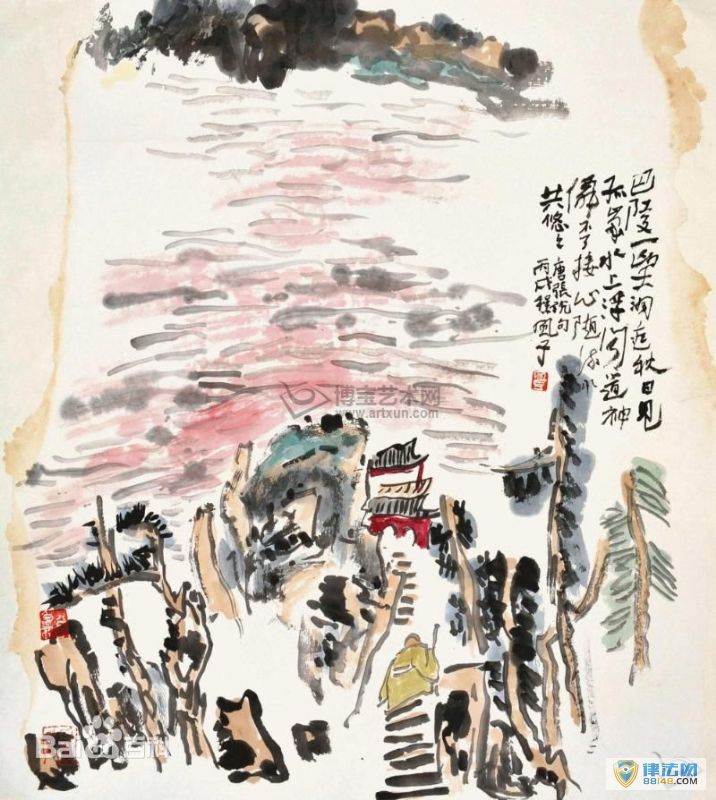 巴陵一望洞庭秋日见
孤峯水上浮闻道神
僊不可接心随湖水
共悠々 唐张说句
丙戌程風子
博宝艺术网
www.artxun.com
Bai百科
律法网
88148.com